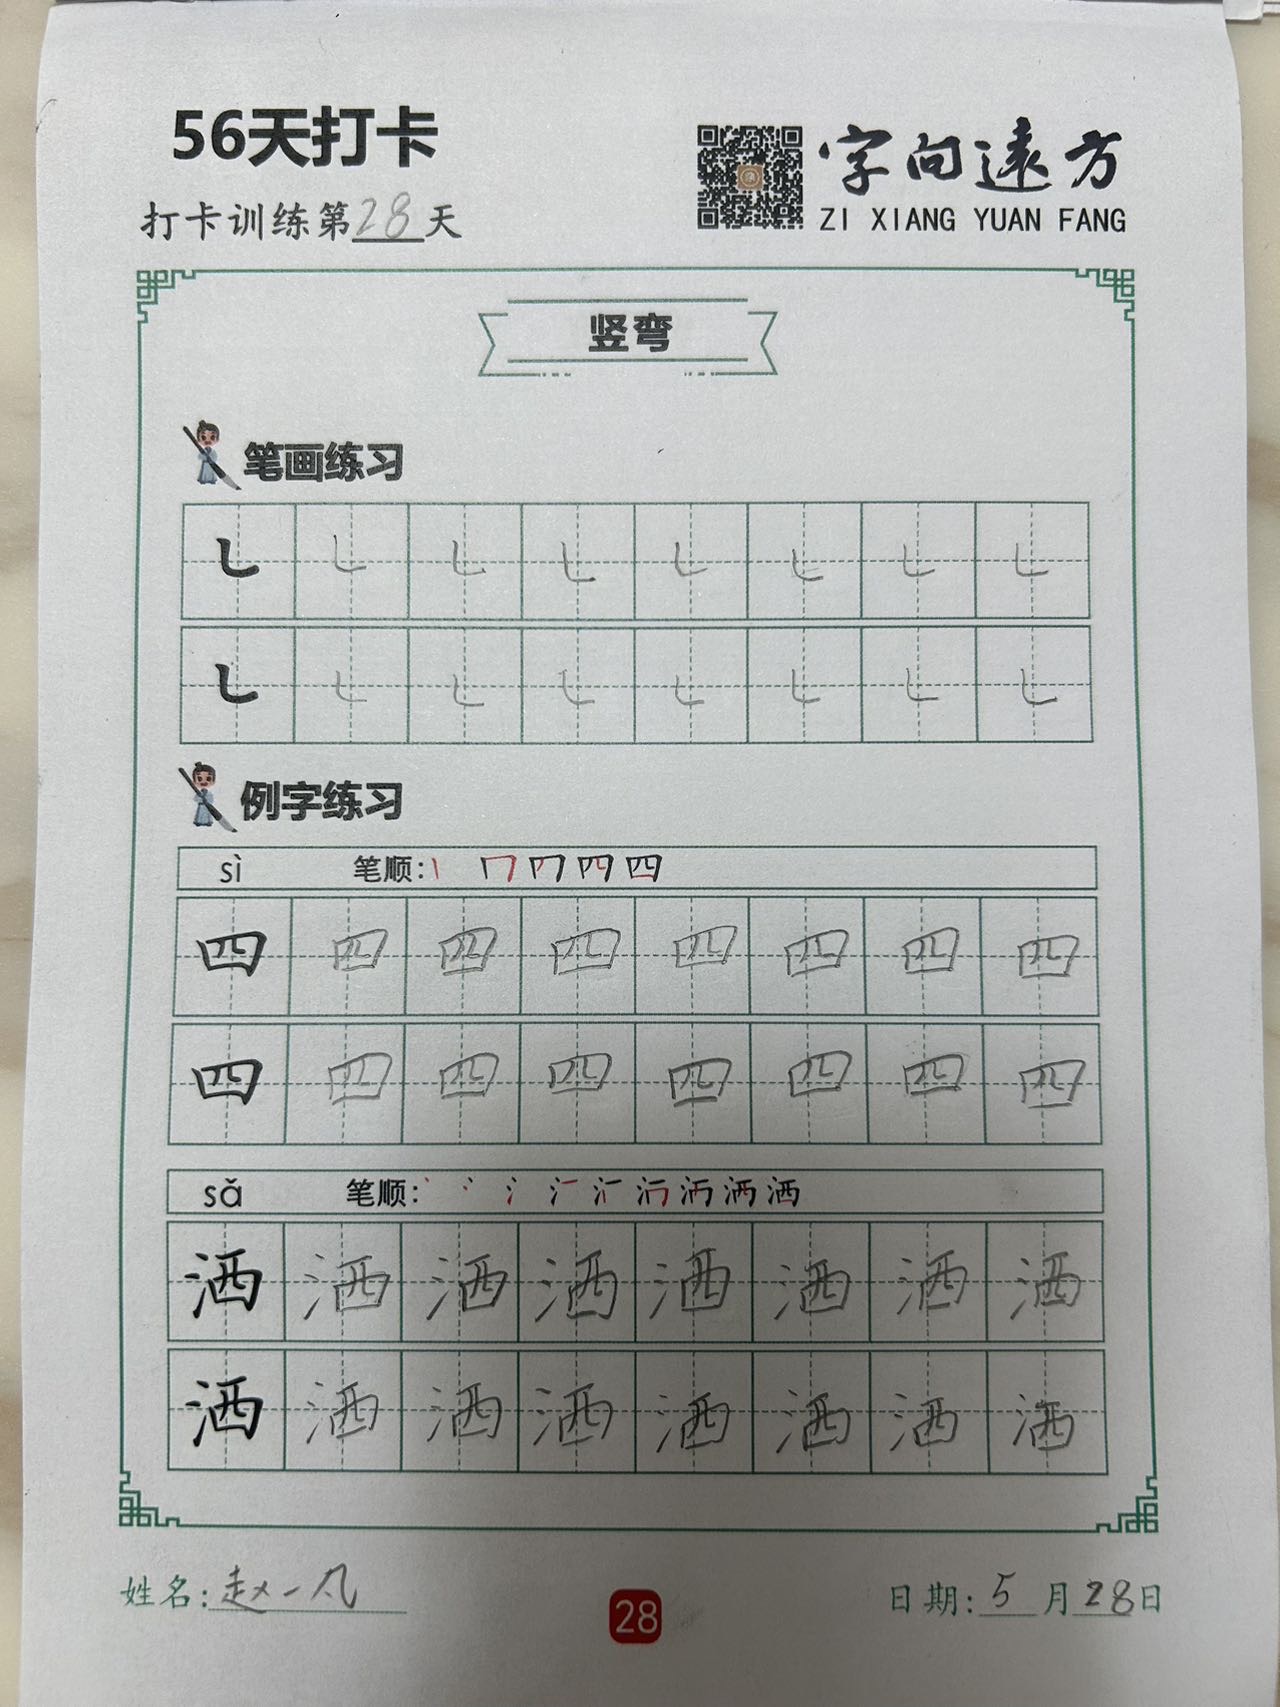 56天打卡
打卡训练第28天
字向远方
ZI XIANG YUAN FANG
竖弯
笔画练习
㇄ ㇄ ㇄ ㇄ ㇄ ㇄ ㇄ ㇄
㇄ ㇄ ㇄ ㇄ ㇄ ㇄ ㇄ ㇄
例字练习
sì 笔顺:
四 四 四 四 四 四 四 四
四 四 四 四 四 四 四 四
sǎ 笔顺:
洒 洒 洒 洒 洒 洒 洒 洒
洒 洒 洒 洒 洒 洒 洒 洒
姓名:赵一凡
28
日期:5月28日